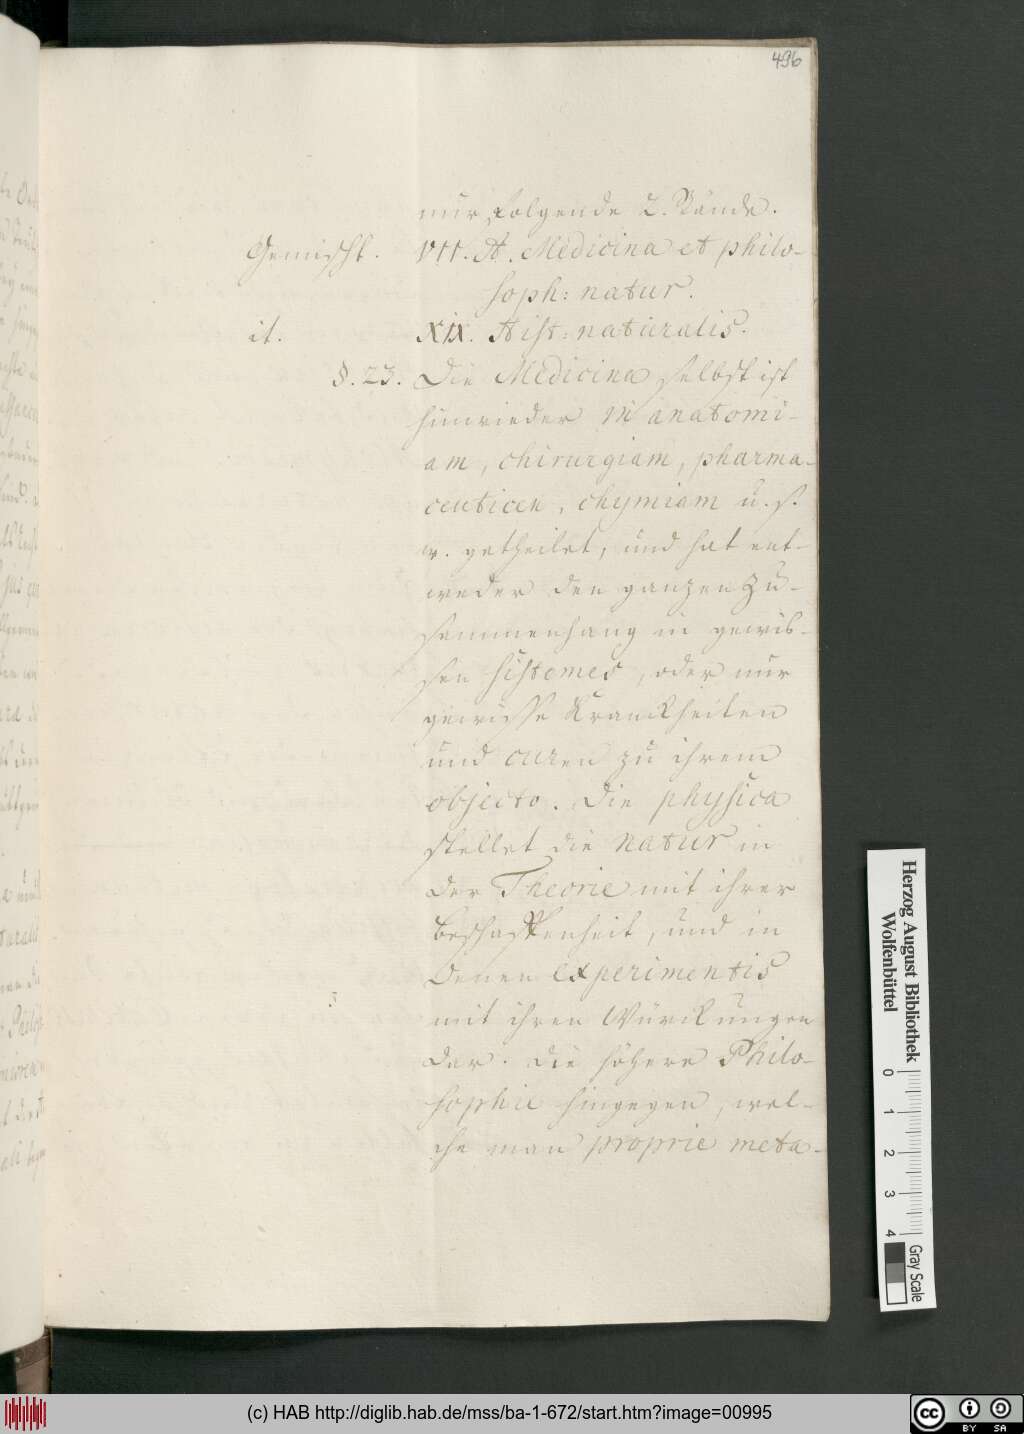 496
nur folgende 2. Bände.
Gemischt. VII. A. Medicina et philo-
soph: natur.
it. XIX. Hist: naturalis.
§. 23. Die Medicina selbst ist
hinwieder in anatomi-
am, chirurgiam, pharma-
ceuticen, chymiam u. s.
w. getheilet, und hat ent-
weder den ganzen Zu-
sammenhang in gewis-
sen sistemes, oder nur
gewisse Kranckheiten
und curen zu ihrem
objecto. Die physica
stellet die natur in
der Theorie mit ihrer
Beschaffenheit, und in
denen experimentis
mit ihren Würckungen
dar. Die höhere Philo-
sophie hingegen, wel-
che man proprie meta-
Herzog August Bibliothek
Wolfenbüttel
0 1 2 3 4
Gray Scale
(c) HAB http://diglib.hab.de/mss/ba-1-672/start.htm?image=00995
cc BY SA